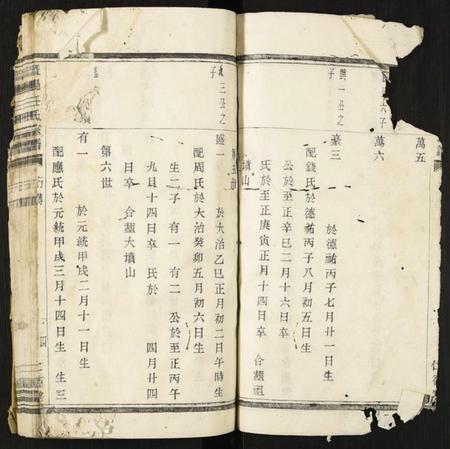 萬五
萬六
龔一公之
子
豪三
於德祐丙子七月廿一日生
配錢氏於德祐丙子八月初五日生
公於至正辛巳二月十六日卒
氏於至正庚寅正月十四日卒 合葬祖
墳山
三公之
子
盛一
於大治乙巳正月初二日午時生
配周氏於大治癸卯五月初六日生
生二子 有一 有二 公於至正丙午
九月十四日卒 氏於 四月廿四
日卒 合葬大墳山
第六世
有一
於元統甲戌二月十一日生
配應氏於元統甲戌三月十四日生 生三